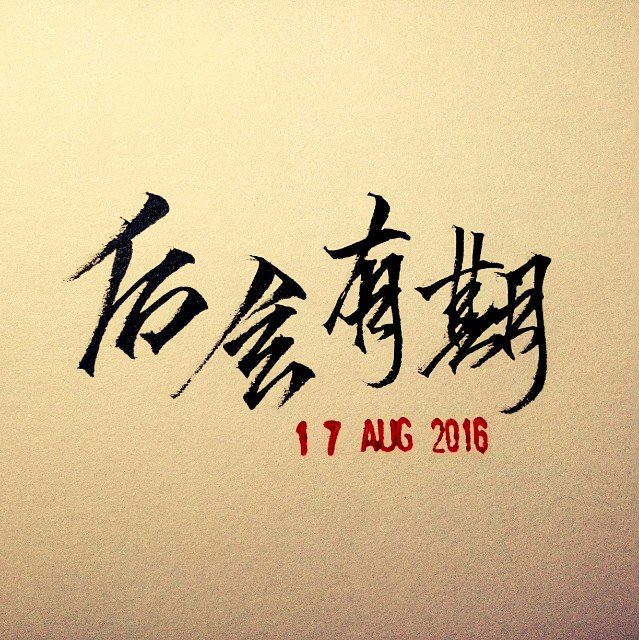 后会有期
17 AUG 2016